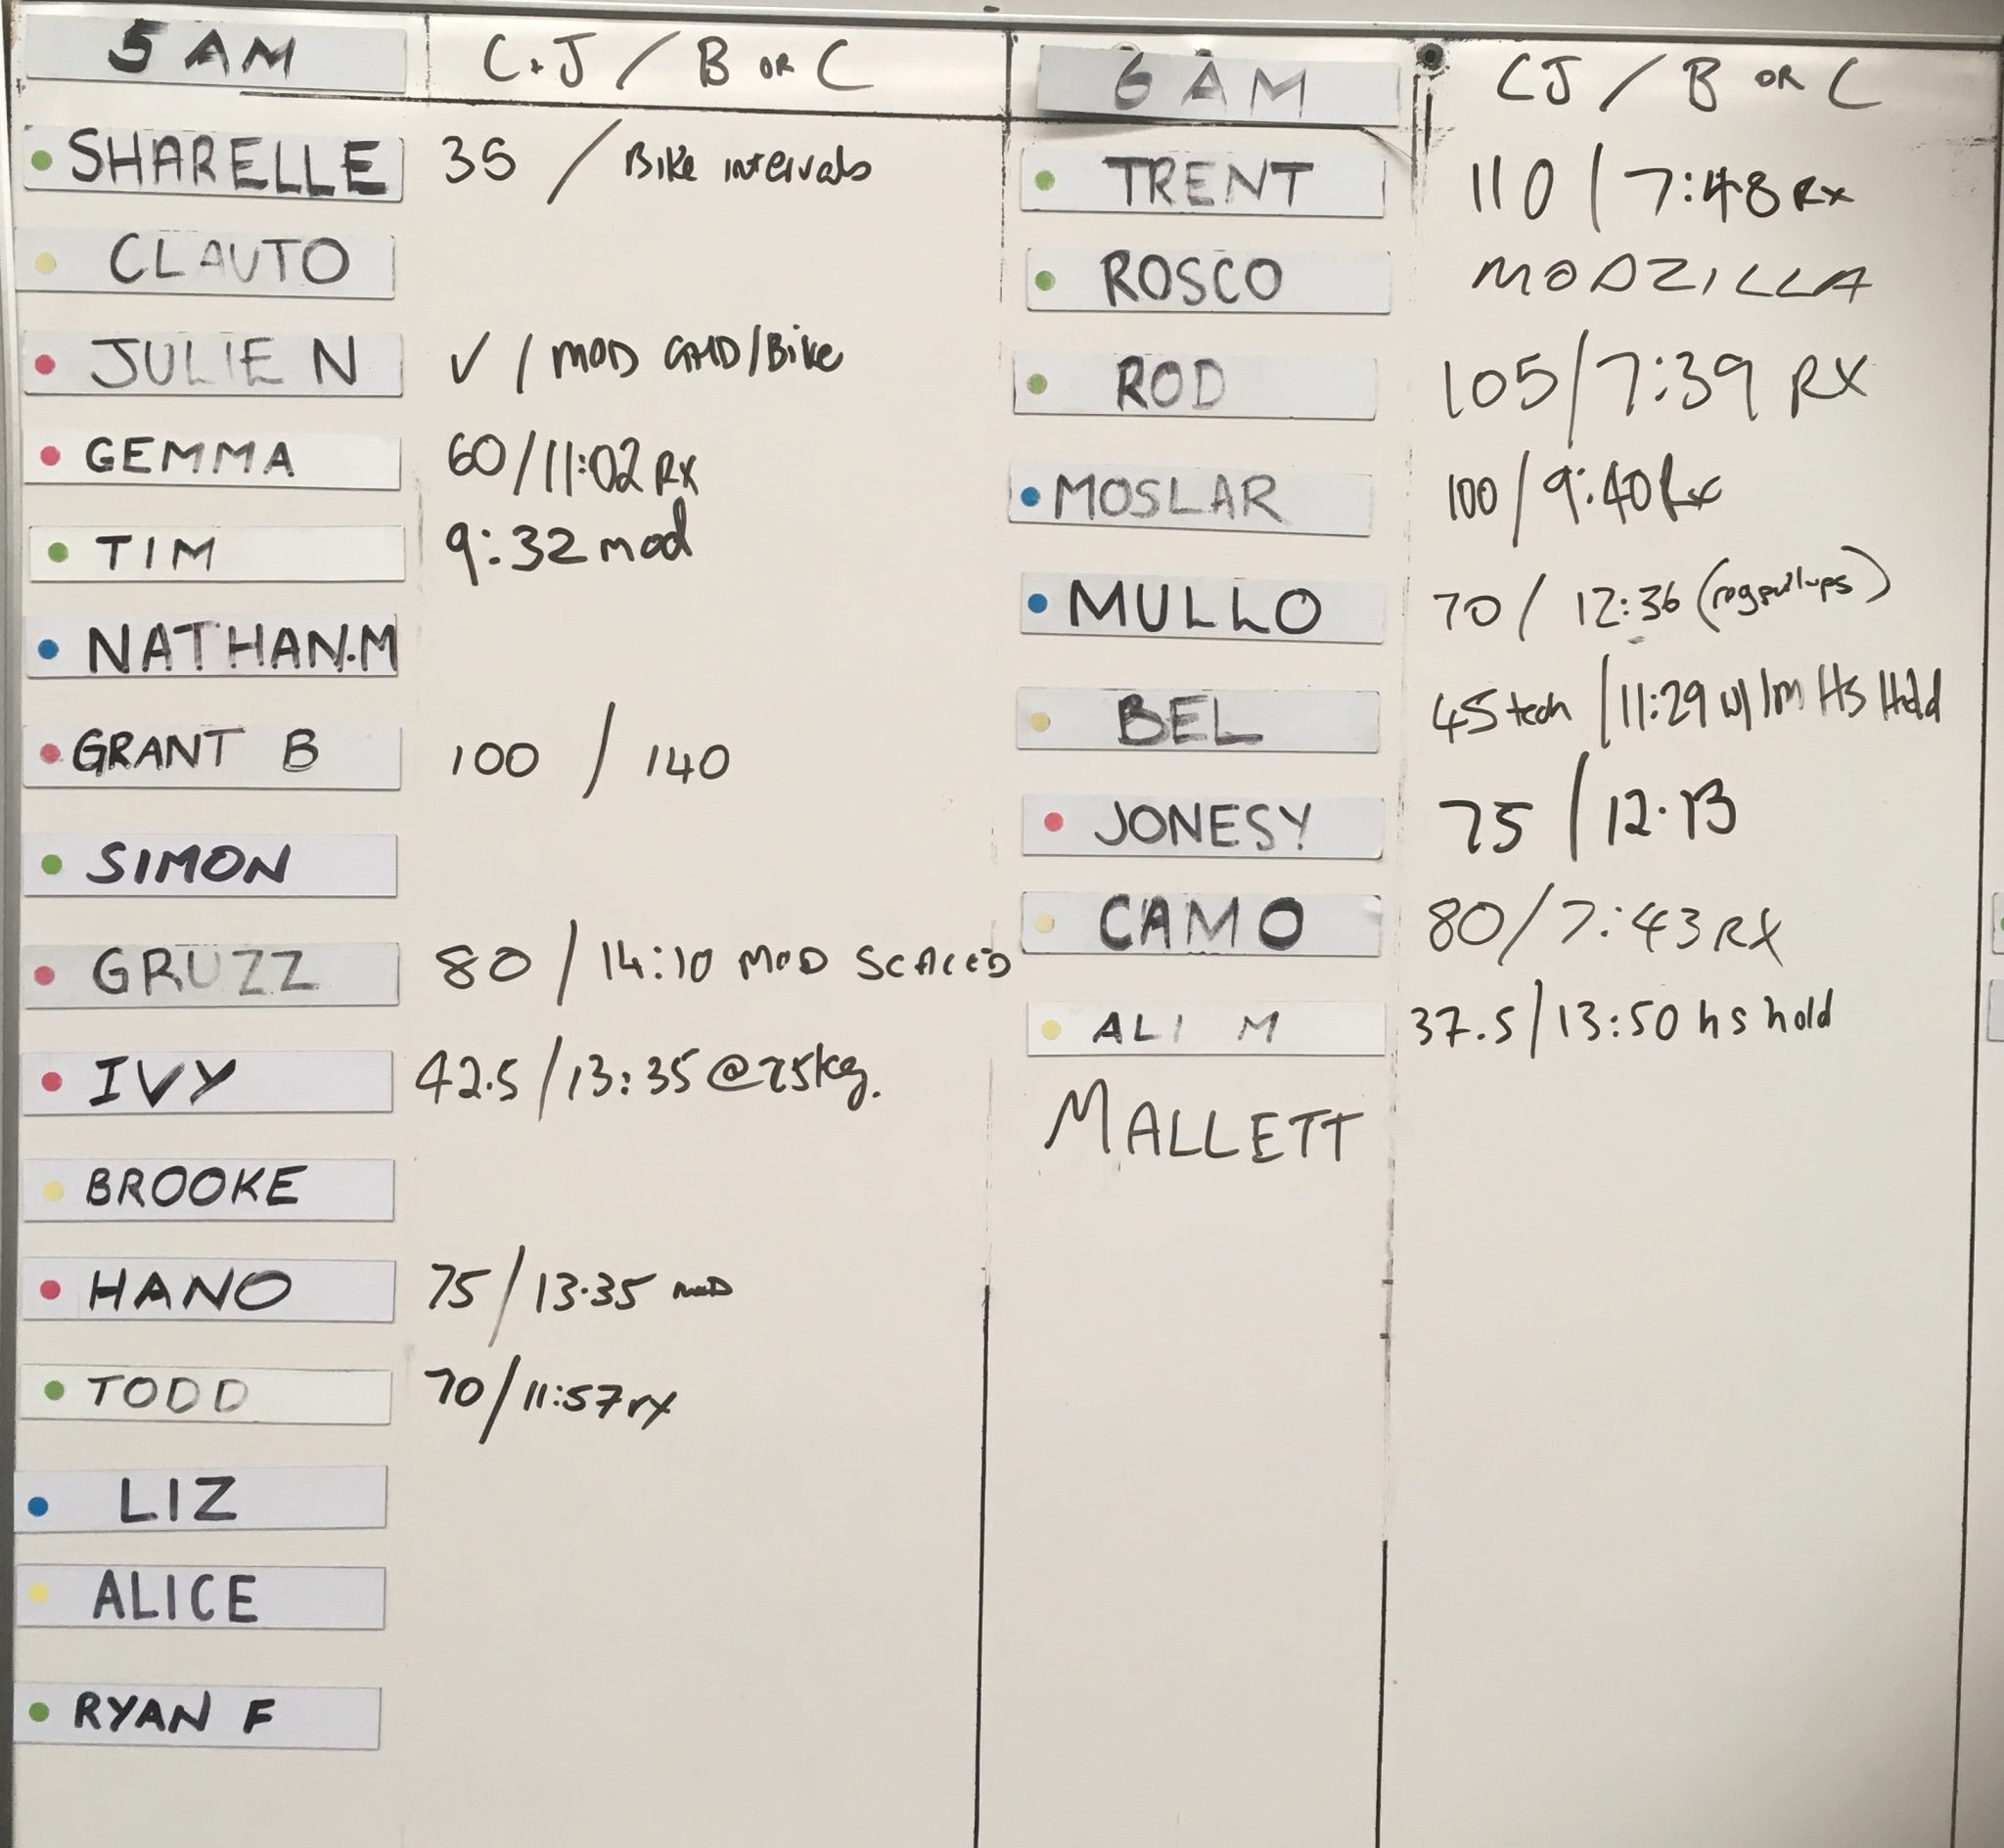 5 AM C+J / B OR C
SHARELLE 35 / Bike intervals
CLAUTO
JULIE N ✓ / MOD GHD/Bike
GEMMA 60/11:02 RX
TIM 9:32 mod
NATHAN.M
GRANT B 100 / 140
SIMON
GRUZZ 80 / 14:10 MOD SCALED
IVY 42.5/13:35 @25kg.
BROOKE
HANO 75/13.35 MOD
TODD 70/11:57 rx
LIZ
ALICE
RYAN F
6 AM CJ / B OR C
TRENT 110 / 7:48 Rx
ROSCO MODZILLA
ROD 105/7:39 RX
MOSLAR 100/9:40 Rx
MULLO 70 / 12:36 (reg pullups)
BEL 45 tech /11:29 w/ 1m HS Hold
JONESY 75 / 12.13
CAMO 80/7:43 RX
ALI M 37.5/13:50 hs hold
MALLETT